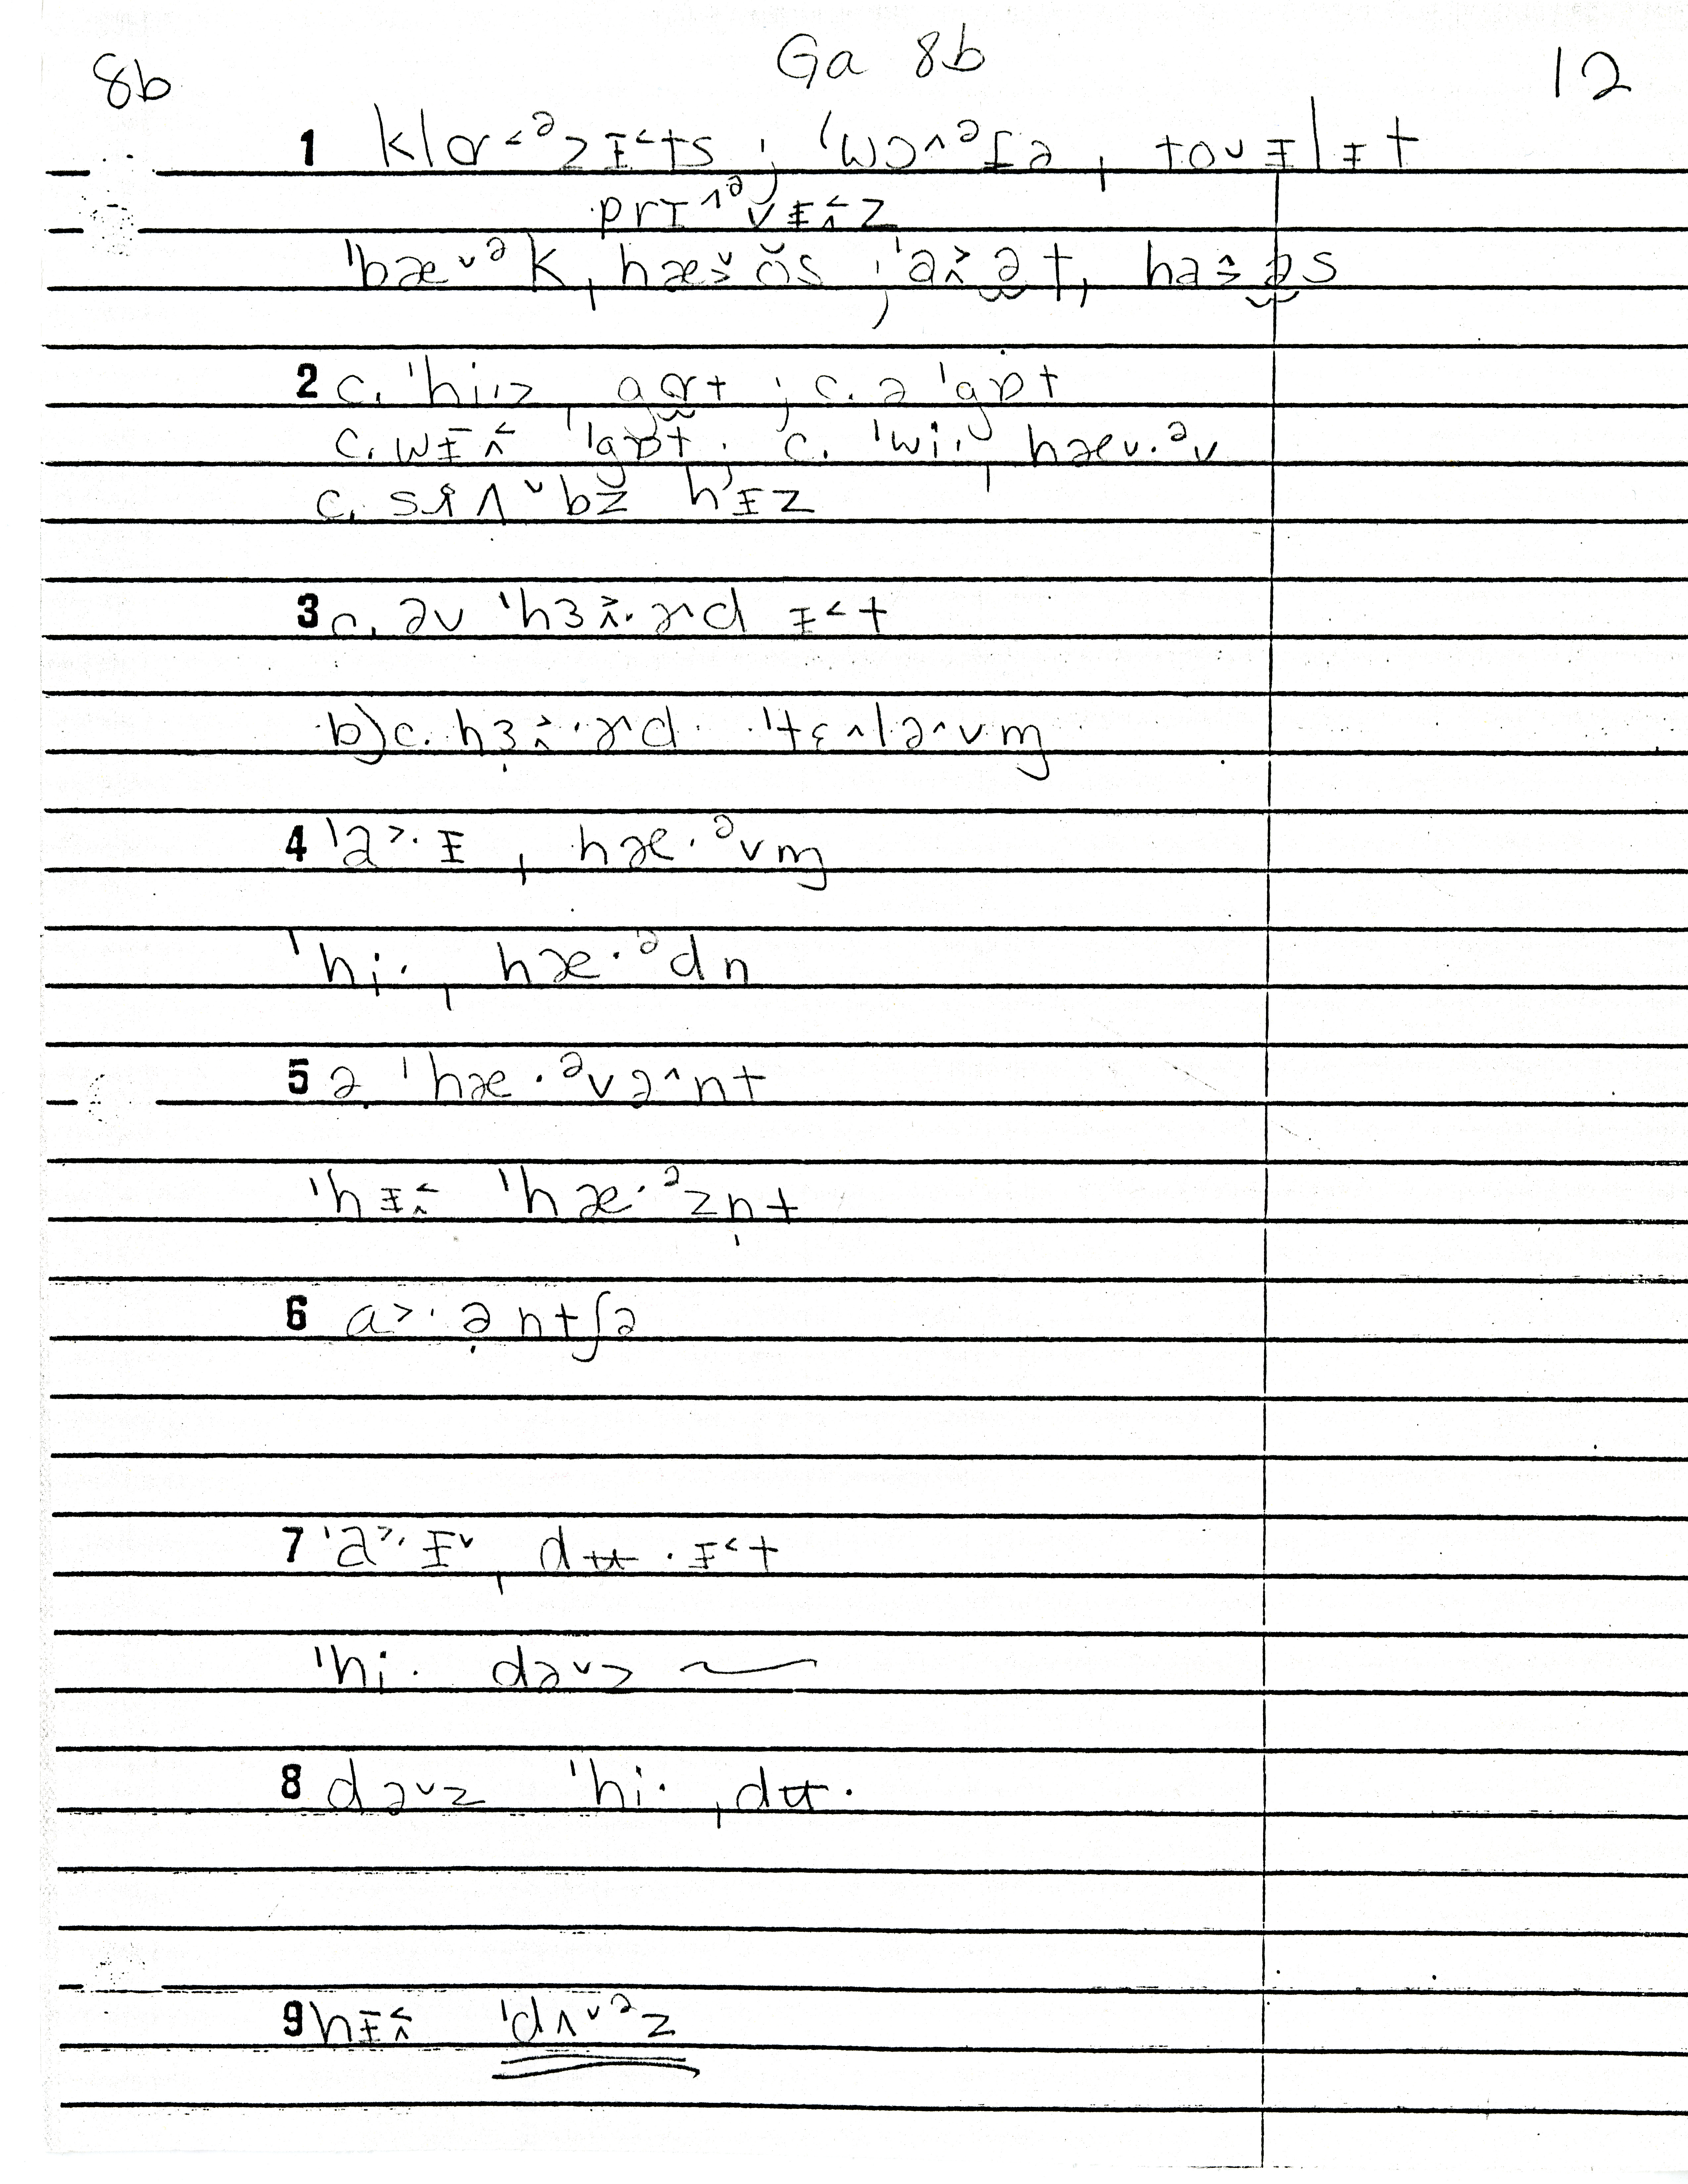 8b Ga 8b 12
1 klɑ˂ᵊzɨ˂ts ; ˈwɔ˄ᵊʃə , toᴜɨlɨt
prɪ˄ᵊvɨ˂z
ˈbæ˅ᵊk , hæ˅ŏs ; ˈa˃ət , ha˃əs
2 c. ˈhi·z gɑt ; c. ə ˈgɒt
c. wɨ˂ ˈgɒt . c. ˈwi· , hæ˅·ᵊv
c. hɨz
3 c. əv ˈhɜ˃·ɚd ɨ˂t
b) c. hɜ˃·ɚd ˈtɛ˄lə˄vm̩
4 ˈa˃·ɨ , hæ·ᵊvm̩
ˈhi· , hæ·ᵊdn
5 ə ˈhæ·ᵊvə˄nt
ˈhɨ˂ ˈhæ·ᵊzn̩t
6 a˃·ə̣ntʃə
7 ˈa˃·ɨ˅ , dʉ·ɨ˂t
ˈhi· də˅z ~
8 də˅z ˈhi· , dʉ·
9 hɨ˂ ˈdʌ˅ᵊz